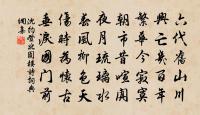 六代舊山川
興亡幾百年
繁華今寂寞
朝市昔喧闐
夜月琉璃水
春風卵色天
傷時為懷古
垂淚國門前
詩詞典
網集